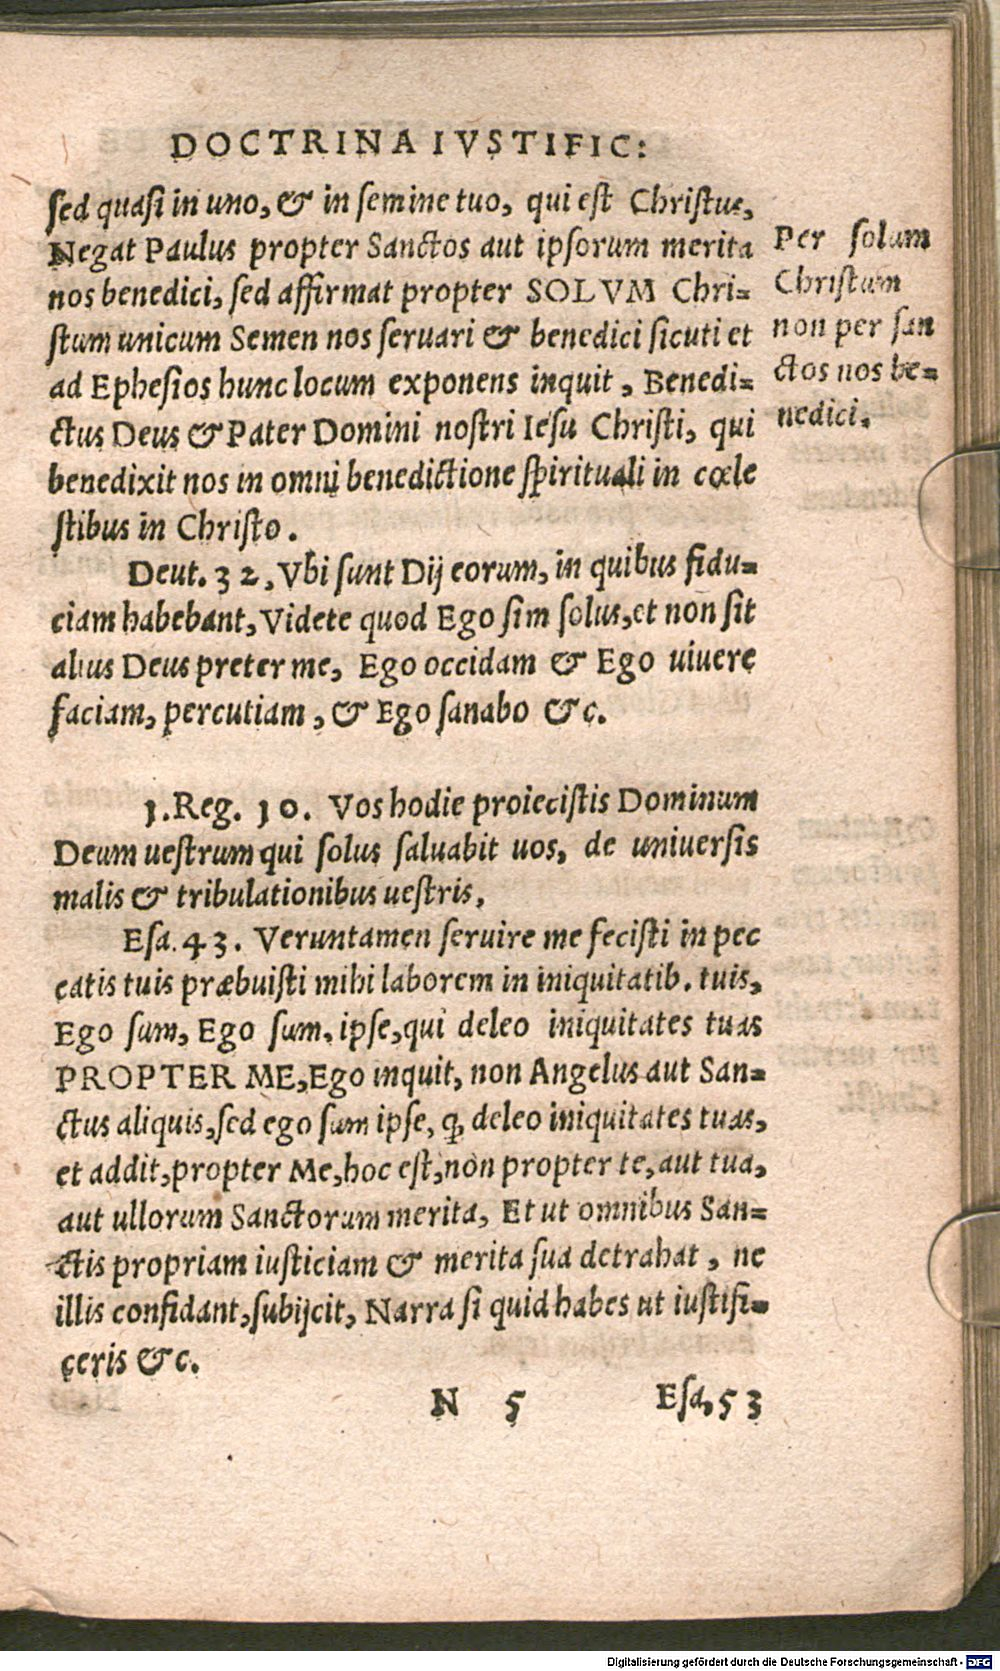 DOCTRINA IVSTIFIC:
sed quasi in uno, & in semine tuo, qui est Christus,
Negat Paulus propter Sanctos aut ipsorum merita
nos benedici, sed affirmat propter SOLVM Chri=
stum unicum Semen nos seruari & benedici sicuti et
ad Ephesios hunc locum exponens inquit, Benedi=
ctus Deus & Pater Domini nostri Iesu Christi, qui
benedixit nos in omni benedictione spirituali in cœle
stibus in Christo.
Per solum
Christum
non per san
ctos nos be=
nedici.
Deut. 32, Vbi sunt Dij eorum, in quibus fidu=
ciam habebant, Videte quod Ego sim solus, et non sit
alius Deus preter me, Ego occidam & Ego uiuere
faciam, percutiam, & Ego sanabo &c.
1. Reg. 10. Vos hodie proiecistis Dominum
Deum uestrum qui solus saluabit uos, de uniuersis
malis & tribulationibus uestris,
Esa. 43. Veruntamen seruire me fecisti in pec
catis tuis præbuisti mihi laborem in iniquitatib. tuis,
Ego sum, Ego sum, ipse, qui deleo iniquitates tuas
PROPTER ME, Ego inquit, non Angelus aut San=
ctus aliquis, sed ego sum ipse, q̃ deleo iniquitates tuas,
et addit, propter Me, hoc est, non propter te, aut tua,
aut ullorum Sanctorum merita, Et ut omnibus San=
ctis propriam iusticiam & merita sua detrahat, ne
illis confidant, subijcit, Narra si quid habes ut iustifi=
ceris &c.
N 5 Esa, 53
Digitalisierung gefördert durch die Deutsche Forschungsgemeinschaft - DFG